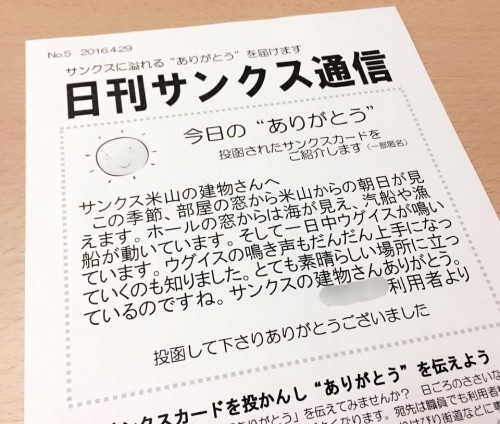 No.5 2016.4.29
サンクスに溢れる“ありがとう”を届けます
日刊サンクス通信
今日の“ありがとう”
投函されたサンクスカードを
ご紹介します(一部匿名)
サンクス米山の建物さんへ
この季節、部屋の窓から米山からの朝日が見
えます。ホールの窓からは海が見え、汽船や漁
船が動いています。そして一日中ウグイスが鳴い
ています。ウグイスの鳴き声もだんだん上手になっ
ていくのも知りました。とても素晴らしい場所に立っ
ているのですね。サンクスの建物さんありがとう。
利用者より
投函して下さりありがとうございました
サンクスカードを投かんし“ありがとう”を伝えよう
う」を伝えてみませんか? 日ごろのささいな
なります。宛先は職員でも利用者